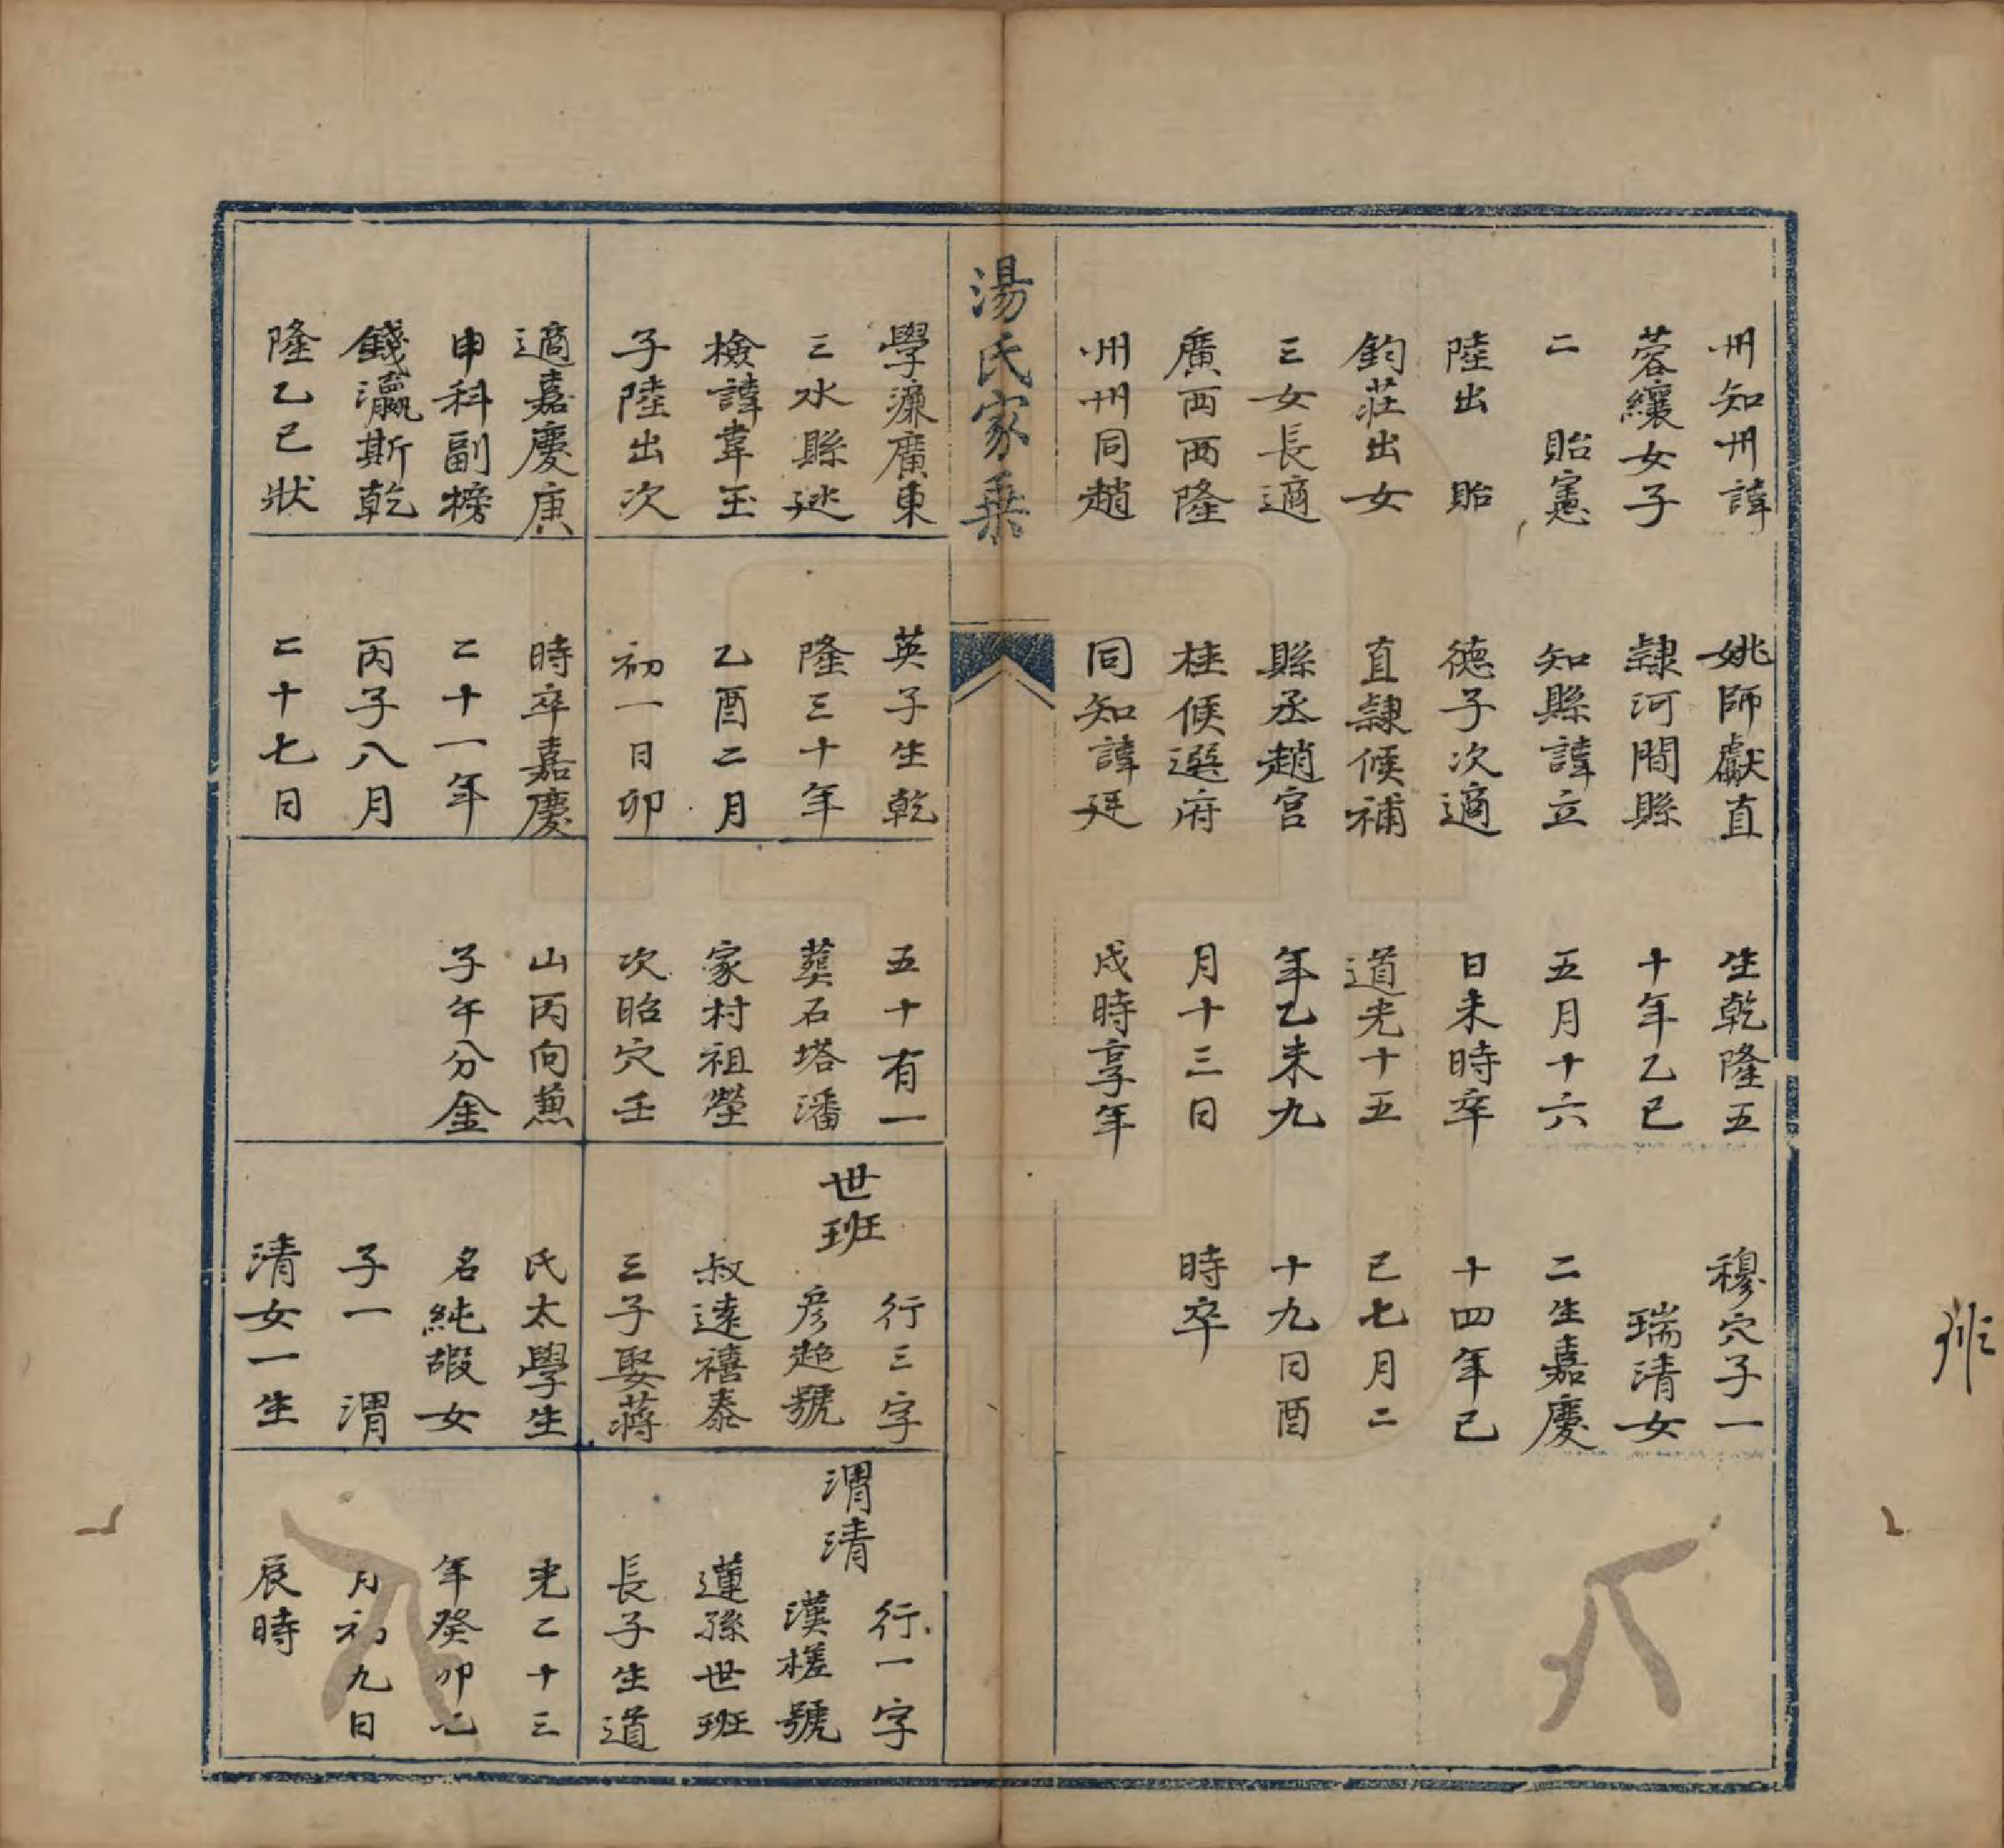 州知州諱
蓉纕女子
二 貽憲
陸出 貽
鈞莊出女
三女長適
廣西西隆
州州同趙
姚師獻直
隸河間縣
知縣諱立
德子次適
直隸候補
縣丞趙宫
桂候選府
同知諱廷
生乾隆五
十年乙巳
五月十六
日未時卒
道光十五
年乙未九
月十三日
戌時享年
穆穴子一
瑞清女
二生嘉慶
十四年己
巳七月二
十九日酉
時卒
湯氏家乗
學濂廣東
三水縣廵
檢諱韋玉
子陸出次
適嘉慶庚
申科副榜
錢瀛斯乾
隆乙巳狀
英子生乾
隆三十年
乙酉二月
初一日卯
時卒嘉慶
二十一年
丙子八月
二十七日
五十有一
葬石塔潘
家村祖塋
次昭穴壬
山丙向兼
子午分金
世班
行三字
彦超號
叔遠禧泰
三子娶蔣
氏太學生
名純嘏女
子一 渭
清女一生
渭清
行一字
漢槎號
蓮孫世班
長子生道
光二十三
年癸卯七
月初九日
辰時
班